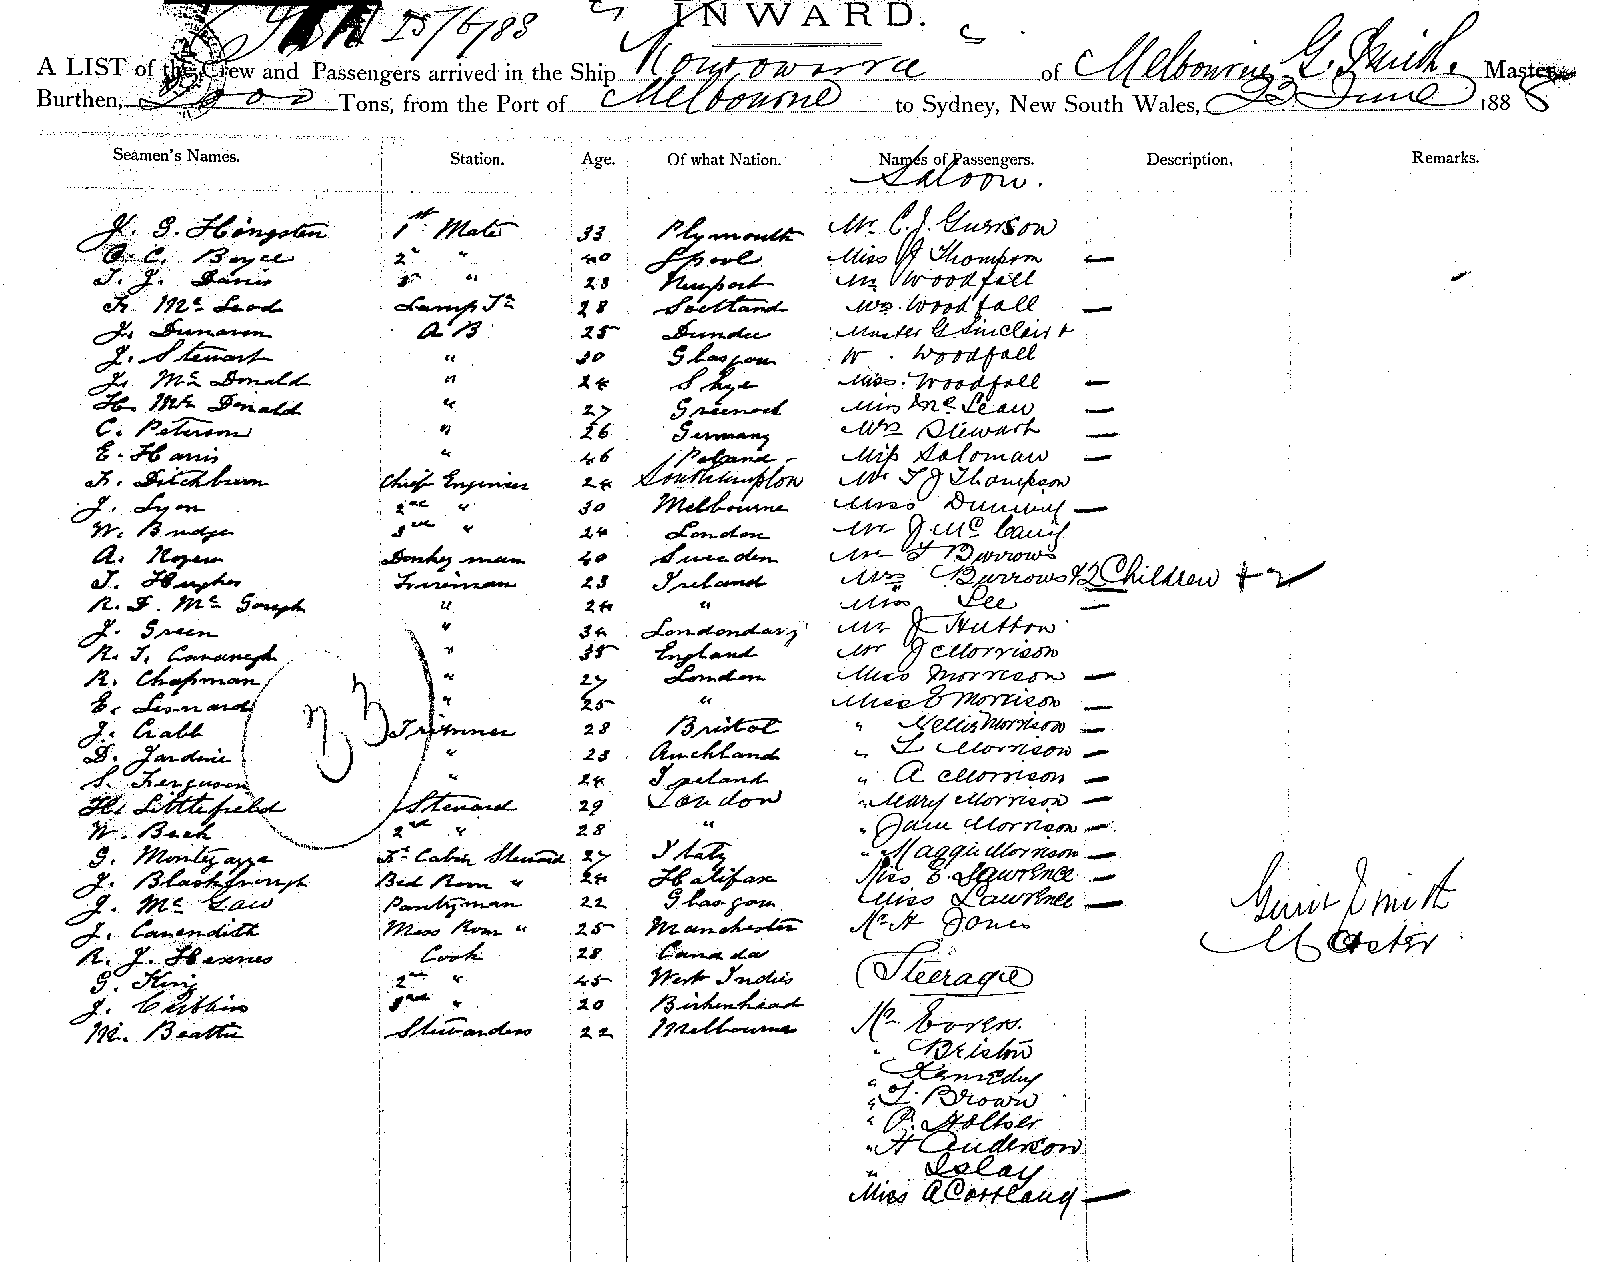 25/6/88
INWARD.
A LIST of the Crew and Passengers arrived in the Ship Konoowarra of Melbourne, G. Smith, Master
Burthen, 2000 Tons, from the Port of Melbourne to Sydney, New South Wales, 23 June 1888
Seamen's Names. Station. Age. Of what Nation. Names of Passengers. Description. Remarks.
Saloon.
J. G. Hingsten 1st Mate 33 Plymouth Mr C. J. Garrson
C. C. Boyce 2nd " 40 Lpool Miss Thompson —
T. J. Davis 3rd " 23 Newport Mr Woodfall
Mc Leod Lamp Tr 28 Scotland Mrs Woodfall —
J. Dunaven A B 25 Dundee Master G Sinclair +
J. Stewart " 30 Glasgow W. Woodfall
J. Mc Donald " 24 Skye Miss Woodfall —
H. Mc Donald " 27 Greenock Miss Mc Lean —
C. Peterson " 26 Germany Mrs Stewart —
E. Harris " 46 Poland Miss Saloman —
F. Ditchburn Chief Engineer 24 Southampton Mr T J Thompson
J. Lyon 2nd " 30 Melbourne Miss —
W. Budge 3rd " 24 London Mr J Mc
A. Donkeyman 40 Sweden Mr T Burrows
T. Hughes Fireman 23 Ireland Mrs Burrows & 2 Children + 2
R. F. Mc Gough " 24 " Miss Lee —
J. Green " 34 Londonderry Mr J Hutton
R. T. Cavanagh " 35 England Mr J Morrison
R. Chapman " 27 London Miss Morrison —
E. Leonard " 25 " Miss E Morrison —
J. Crabb Trimmer 28 Bristol " Nellie Morrison —
D. Jardine " 23 Auckland " L Morrison —
S. Ferguson " 24 Ireland " A Morrison —
H. Littlefield Steward 29 London " Mary Morrison —
W. Beck 2nd " 28 " " Jane Morrison —
G. Fr Cabin Steward 27 Italy " Maggie Morrison —
J. Blackburgh Bed Room " 24 Halifax Miss E. Lawrence —
J. Mc Gaw Pantryman 22 Glasgow Miss Lawrence —
J. Cavendith Mess Room " 25 Manchester Mr H Jones
R. J. Hermes Cook 28 Canada
G. King 2nd " 45 West Indies Steerage
J. Cribbins 3rd " 20 Birkenhead
M. Beattie Stewardess 22 Melbourne Mr
" Briston
" Kennedy
" T. Brown
" P. Holtser
" H Anderson
" Islay
Miss A Cortland —
33
Smith
Master